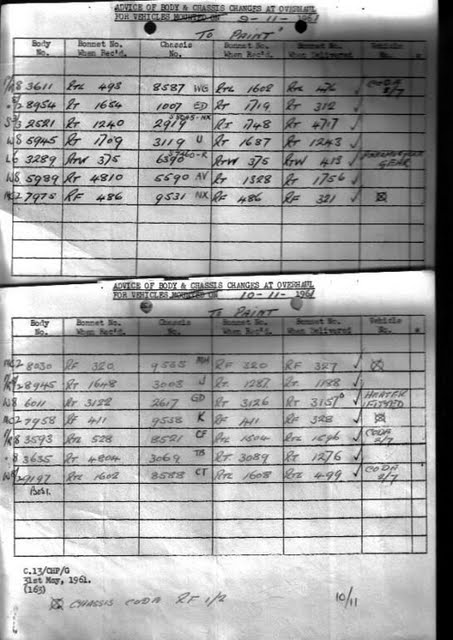 ADVICE OF BODY & CHASSIS CHANGES AT OVERHAUL
FOR VEHICLES MOUNTED ON 9-11-1961
"TO PAINT"
Body No. Bonnet No. When Rec'd. Chassis No. Bonnet No. When Delivered Vehicle No.
3611 RTL 495 8587 WG RTL 1602 RTL 476 ✓ CODA 2/7
8954 RT 1654 1007 ED RT 1719 RT 312 ✓
2521 RT 1240 2919 RT 1748 RT 4717 ✓
W8 5945 RT 1709 3119 U RT 1687 RT 1243 ✓
L6 3289 RTW 375 6390 RTW 375 RTW 413 ✓ GEAR
W8 5989 RT 4810 5590 AV RT 1328 RT 1756 ✓
7975 RF 486 9531 NX RF 486 RF 321 ✓ ☒
ADVICE OF BODY & CHASSIS CHANGES AT OVERHAUL
FOR VEHICLES MOUNTED ON 10-11-1961
"TO PAINT"
Body No. Bonnet No. When Rec'd. Chassis No. Bonnet No. When Delivered Vehicle No.
8030 RF 320 9565 MH RF 320 RF 327 ✓ ☒
8945 RT 1648 3003 J RT 1287 RT 1188 ✓
W8 6011 RT 3122 2617 GD RT 3126 RT 3157 ✓ HEATER FITTED
7958 RF 411 9558 K RF 411 RF 328 ✓ ☒
3593 RTL 528 8521 CF RTL 1504 RTL 1596 ✓ CODA 2/7
8 3635 RT 4804 3069 TB RT 3089 RT 1276 ✓
9197 RTL 1608 8588 CT RTL 1608 RTL 499 ✓ CODA 2/7
C.13/CHP/G
31st May, 1961.
(163)
☒ CHASSIS CODA RF 1/2 10/11